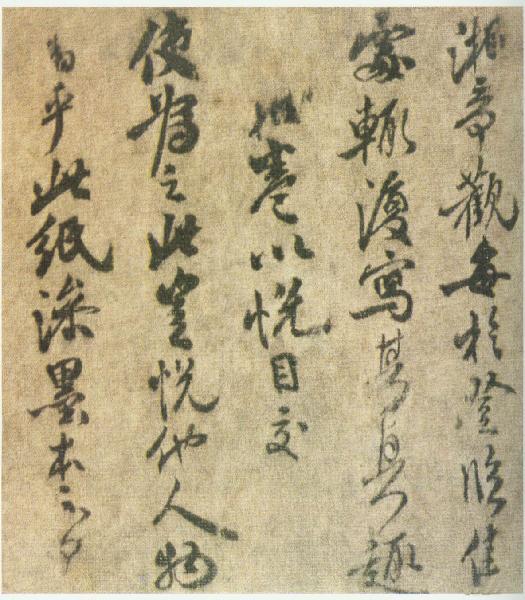 湘奇觀每於登臨佳
處輒復寫其真趣
卷以悅目交
使為之此豈悅他人物
者乎此紙滲墨本不可